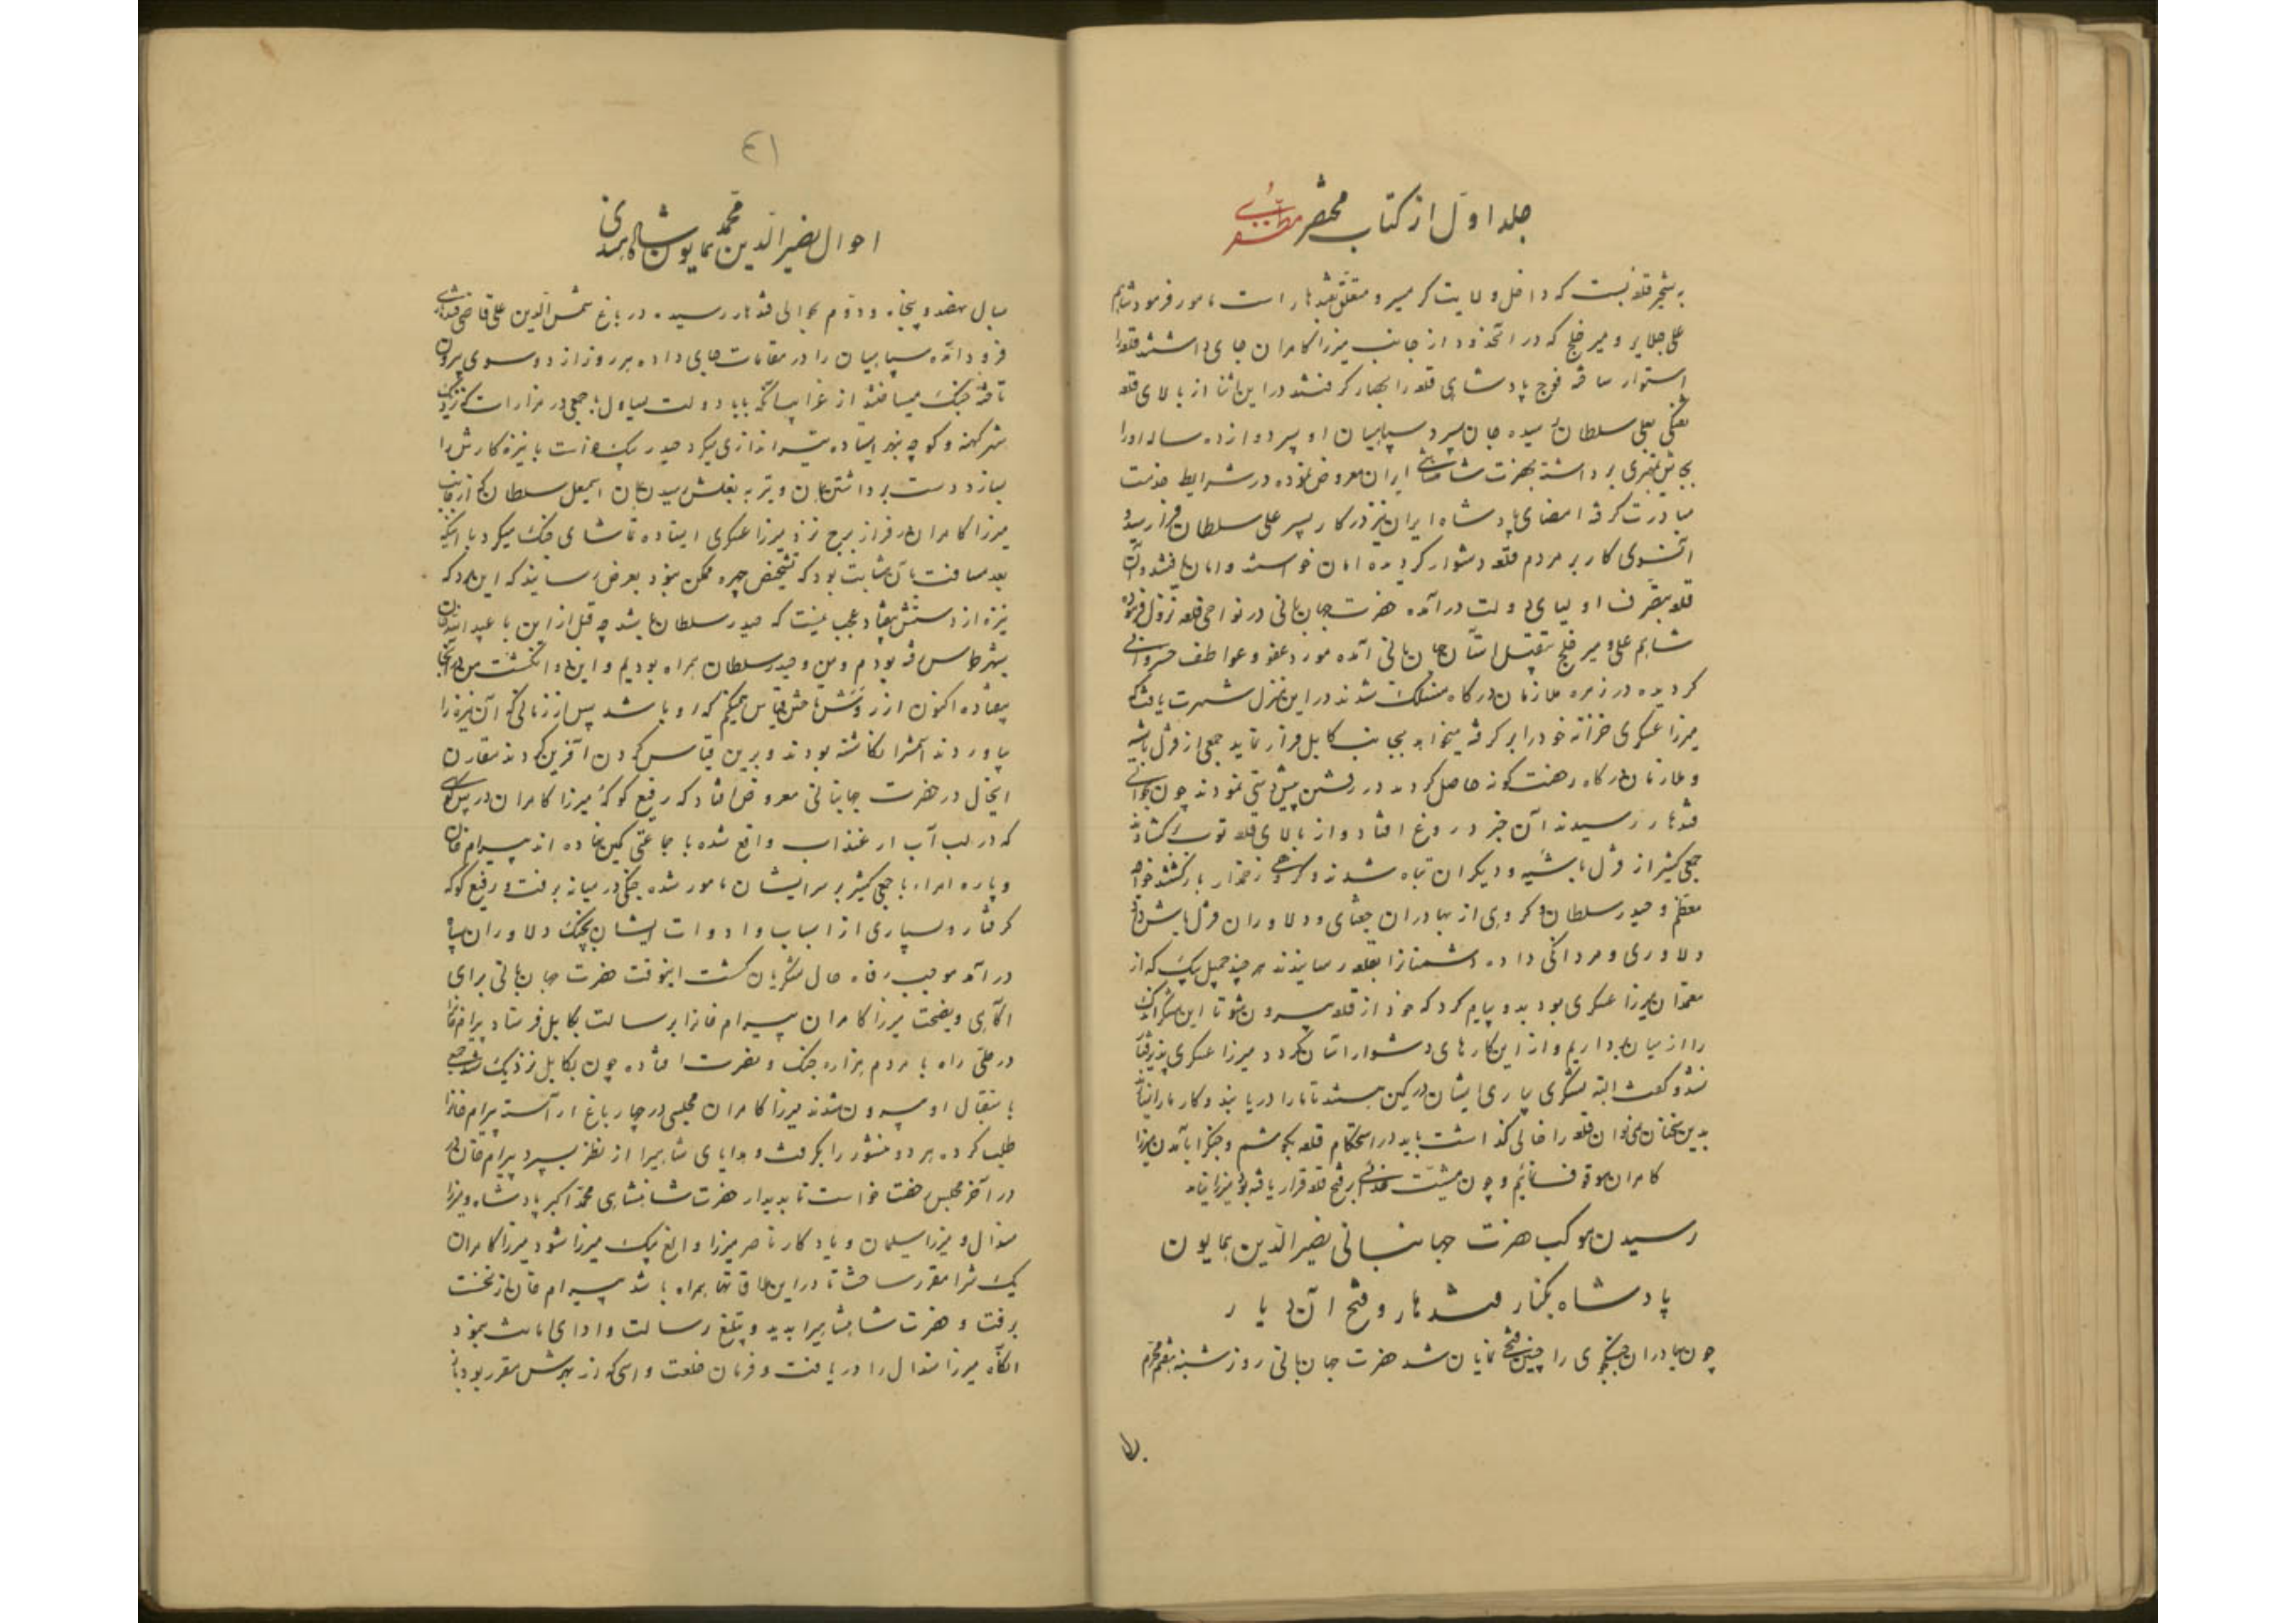 جلد اول از کتاب مختصر مظفری
به تسخیر قلعه بست که داخل ولایت گرمسیر و متعلق بقندهار است مامور فرمود شاهم
علی جلایر و میر خلج که در انحدود از جانب میرزا کامران جای داشتند قلعه را
استوار ساخته فوج پادشاهی قلعه را بحصار گرفتند در این اثنا از بالای قلعه
تفنگی بعلی سلطان رسیده جان سپرد سپاهیان او پسر دوازده ساله او را
بجایش بمهتری برداشته بحضرت شاهنشاهی ایران معروض نموده در شرایط خدمت
مبادرت کرفته امضای پادشاه ایران نیز در کار پسر علی سلطان فراز رسید و
کار بر مردم قلعه دشوار گردیده امان خواستند و امان یافتند و آن
قلعه بتصرف اولیای دولت درآمده حضرت جهانبانی در نواحی قلعه نزول فرموده
شاهم علی و میر خلج بتقبیل آستان جهانبانی آمده مورد عفو و عواطف خسروانی
گردیده در زمره ملازمان درگاه منسلک شدند در این منزل شهرت یافت که
میرزا عسکری خزانه خود را برگرفته میخواهد بجانب کابل فرار نماید جمعی از قزلباشیه
و ملازمان درگاه رخصت گونه حاصل کرده در رفتن پیش دستی نمودند چون بحوالی
قندهار رسیدند آن خبر دروغ افتاد و از بالای قلعه توپ گشادند
جمعی کثیر از قزلباشیه و دیگران تباه شدند و گروهی زخمدار بازگشتند خواجه
معظم و حیدر سلطان و گروهی از بهادران جغتای و دلاوران قزلباش داد
دلاوری و مردانگی داده دشمنانرا بقلعه رسانیدند هر چند جمیل بیک که از
معتمدان میرزا عسکری بود بدو پیام کرد که خود از قلعه بیرون شو تا این لشکر اندک
را از میان برداریم و از این کارهای دشوار آسان گردد میرزا عسکری پذیرفتار
نشد و گفت البته لشکری بیاری ایشان در کمین هستند تا ما را دریابند و کار ما را
بدین سخنان نمیتوان قلعه را خالی گذاشت باید در استحکام قلعه بکوشم و جنگ را بآمدن میرزا
کامران موقوف نمائیم و چون مشیت خدائی بر فتح قلعه قرار یافته بود میرزا نیامد
رسیدن موکب حضرت جهانبانی نصیرالدین همایون
پادشاه بکنار قندهار و فتح آن دیار
چون بهادران جنگجوی را چنین فتح نمایان شد حضرت جهانبانی روز شنبه هفتم محرم
٤١
احوال نصیرالدین محمد همایون شاه هندی
بسال نهصد و پنجاه و دوم بحوالی قندهار رسیده در باغ شمس الدین علی قاضی قندهار
فرود آمده سپاهیان را در مقامات جای داده هر روز از دو سوی بیرون
تافته جنگ میساختند از غرایب آنکه بابا دولت یساول با جمعی در مزارات نزدیک
شهر کهنه و کوچه بند ایستاده تیراندازی میکرد حیدر بیک خواست با نیزه کارش را
بسازد دست برداشتن همان و تیر به بغلش رسیدن همان اسمعیل سلطان که از جانب
میرزا کامران در فراز برج نزد میرزا عسکری ایستاده تماشای جنگ میکرد با اینکه
بعد مسافت بآن مثابت بود که تشخیص چهره ممکن نبود بعرض رسانید که این مرد که
نیزه از دستش بیفتاد عجب نیست که حیدر سلطان باشد چه قبل از این با عبید الله خان
بشهر طوس رفته بودم و من و حیدر سلطان همراه بودیم و این دو انگشت من در آنجا
بیفتاده اکنون از روش تاختن قیاس میکنم که او باشد پس از زمانی که آن نیزه را
بیاوردند اسمش را نگاشته بودند و برین قیاس کردن آفرین کردند مقارن
اینحال در حضرت جهانبانی معروض افتاد که رفیع کوکه میرزا کامران در پس کوهی
که در لب آب ارغنداب واقع شده با جماعتی کمین نهاده اند بیرام خان
و پاره امراء با جمعی کثیر بر سر ایشان مامور شده جنگی در میانه برفت و رفیع کوکه
گرفتار و بسیاری از اسباب و ادوات ایشان بچنگ دلاوران سپاه
درآمد موجب رفاه حال لشکریان گشت اینوقت حضرت جهانبانی برای
آگاهی و نصیحت میرزا کامران بیرام خانرا برسالت بکابل فرستاد بیرام خانرا
در طی راه با مردم هزاره جنگ و نصرت افتاده چون بکابل نزدیک شد جمعی
باستقبال او بیرون شدند میرزا کامران مجلسی در چارباغ آراسته بیرام خانرا
طلب کرده هر دو منشور را بگرفت و هدایای شاهیرا از نظر بسپرد بیرام خان
در آخر مجلس رخصت خواست تا بدیدار حضرت شاهنشاهی محمد اکبر پادشاه و میرزا
هندال و میرزا سلیمان و یادگار ناصر میرزا و الغ بیک میرزا شود میرزا کامران
یک نفر را مقرر ساخت تا در این ملاقاتها همراه باشد بیرام خان از نخست
برفت و حضرت شاهنشاهیرا بدید و تبلیغ رسالت و ادای امانت بنمود
آنگاه میرزا هندال را دریافت و فرمان خلعت و اسبی که از بهرش مقرر بود